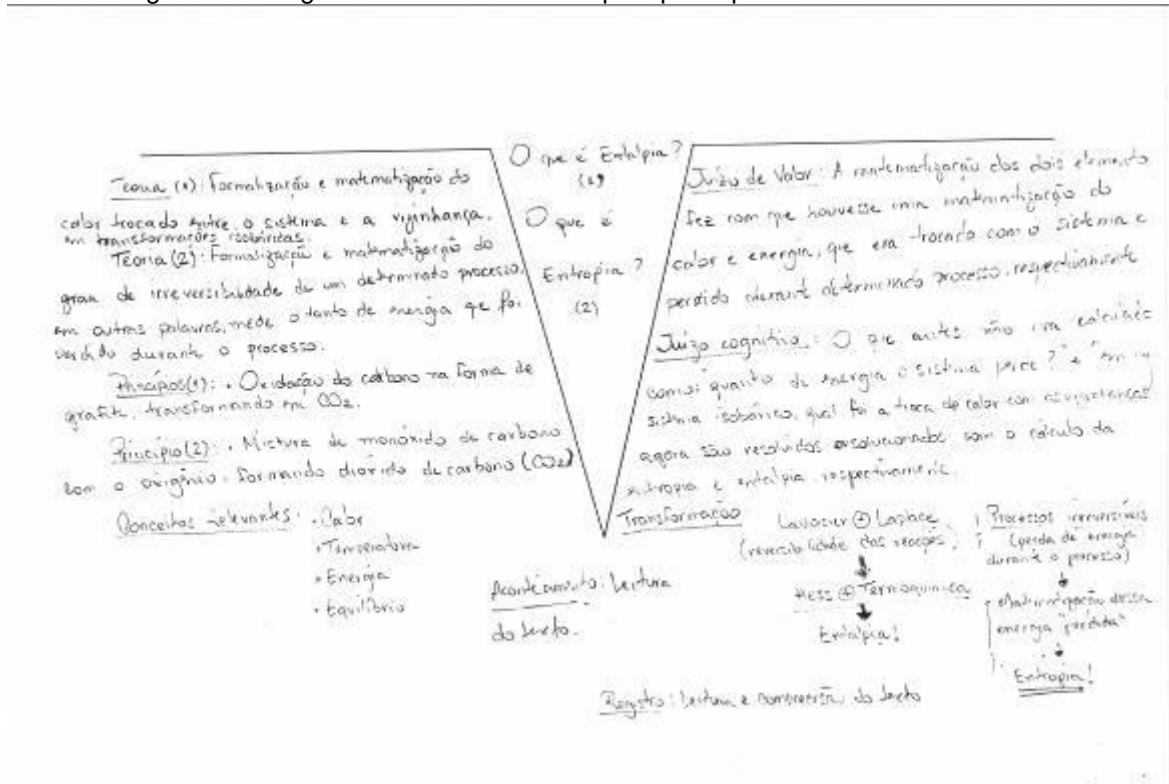 O que é Entalpia?
(1)
O que é
Entropia?
(2)
Teoria (1): Formalização e matematização do
calor trocado entre o sistema e a vizinhança,
em transformações isobáricas.
Teoria (2): Formalização e matematização do
grau de irreversibilidade de um determinado processo,
em outras palavras, mede o tanto de energia que foi
perdido durante o processo.
Princípios(1): • Oxidação do carbono na forma de
grafite, transformando em CO2.
Princípio(2): • Mistura de monóxido de carbono
com o oxigênio, formando dióxido de carbono (CO2)
Conceitos relevantes: • Calor
• Temperatura
• Energia
• Equilíbrio
Acontecimento: Leitura
do texto.
Juízo de Valor: A matematização dos dois elementos
fez com que houvesse uma matematização do
calor e energia, que era trocado com o sistema e
perdido durante determinado processo, respectivamente
Juízo cognitivo: O que antes não era
como: quanto de energia o sistema perde?" e "em
sistema isobárico, qual foi a troca de calor com
agora são resolvidos com o cálculo da
entropia e entalpia respectivamente.
Transformação
Lavoisier ⊕ Laplace
(reversibilidade das reações)
Hess ⊕ Termoquímica
Entalpia!
Processos irreversíveis
(perda de energia
durante o processo)
Matematização dessa
energia "perdida"
Entropia!
Registro: Leitura e compreensão do texto